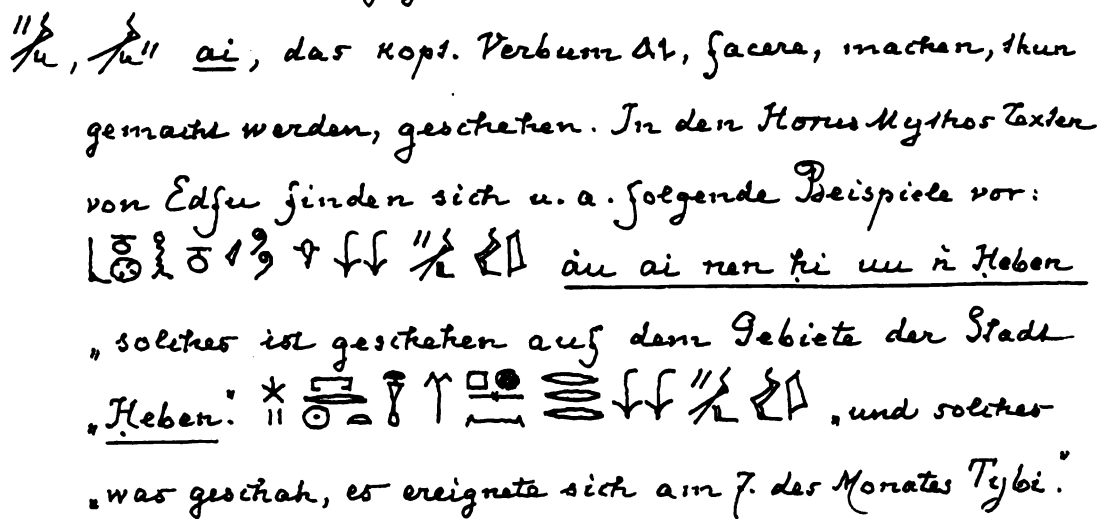 ai, das kopt. Verbum ⲁⲓ, facere, machen, thun
gemacht werden, geschehen. In den Horus Mythos Texten
von Edfu finden sich u. a. folgende Beispiele vor:
áu ai nen ḥi uu ṅ Ḥeben
„solches ist geschehen auf dem Gebiete der Stadt
„Ḥeben." „und solches
„was geschah, es ereignete sich am 7. des Monates Tybi."